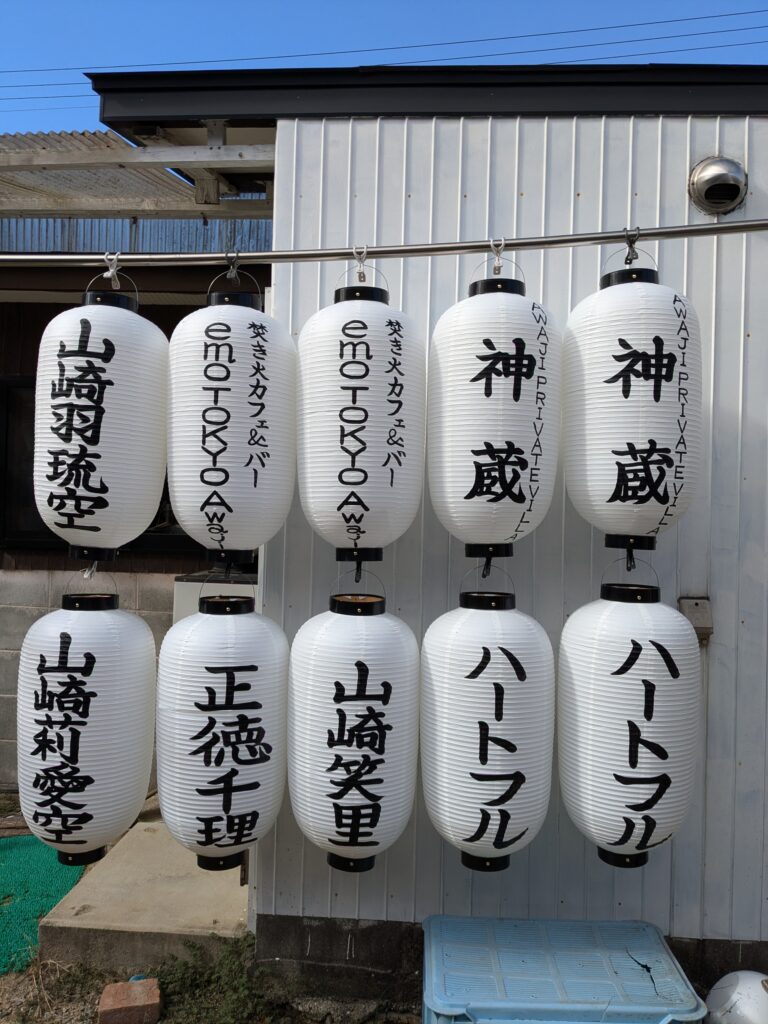 山崎羽琉空
焚き火カフェ&バー
emo TOKYO Awaji
焚き火カフェ&バー
emo TOKYO Awaji
AWAJI PRIVATE VILLA
神蔵
AWAJI PRIVATE VILLA
神蔵
山崎莉愛空
正徳千理
山崎笑里
ハートフル
ハートフル